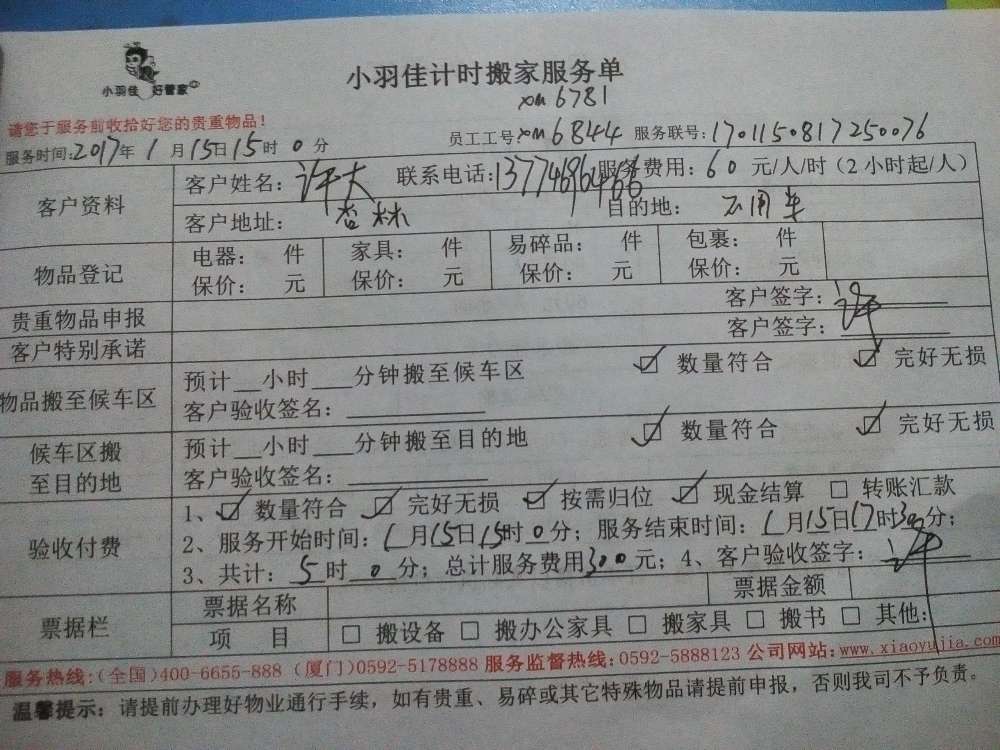 小羽佳 好管家
小羽佳计时搬家服务单
xm 6781
请您于服务前收拾好您的贵重物品！
员工工号:xm 6844 服务联号:1701150817250076
服务时间:2017年1月15日15时0分
客户资料 客户姓名: 许大 联系电话: 服务费用: 60 元/人/时（2小时起/人）
客户地址: 杏林 目的地: 不用车
物品登记 电器: 件 家具: 件 易碎品: 件 包裹: 件
保价: 元 保价: 元 保价: 元 保价: 元
贵重物品申报 客户签字: 许
客户特别承诺 客户签字:
物品搬至候车区 预计__小时___分钟搬至候车区 ☑ 数量符合 ☑ 完好无损
客户验收签名:
候车区搬至目的地 预计__小时___分钟搬至目的地 ☑ 数量符合 ☑ 完好无损
客户验收签名:
验收付费 1、☑ 数量符合 ☑ 完好无损 ☑ 按需归位 ☑ 现金结算 □ 转账汇款
2、服务开始时间: 1月15日15时0分; 服务结束时间: 1月15日17时30分;
3、共计: 5时0分; 总计服务费用300元; 4、客户验收签字: 许
票据栏 票据名称 票据金额
项 目 □ 搬设备 □ 搬办公家具 □ 搬家具 □ 搬书 □ 其他:
服务热线:(全国)400-6655-888 (厦门)0592-5178888 服务监督热线:0592-5888123 公司网站:www.xiaoyujia.com
温馨提示: 请提前办理好物业通行手续，如有贵重、易碎或其它特殊物品请提前申报，否则我司不予负责。